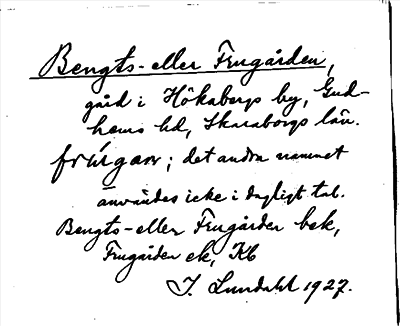 Bengts- eller Frugården,
gård i Hökabergs by, Gud-
hems hd, Skaraborgs län.
frúgaɷ; det andra namnet
användes icke i dagligt tal.
Bengts- eller Frugården bek,
Frugården ek, Kb
I. Lundahl 1927.